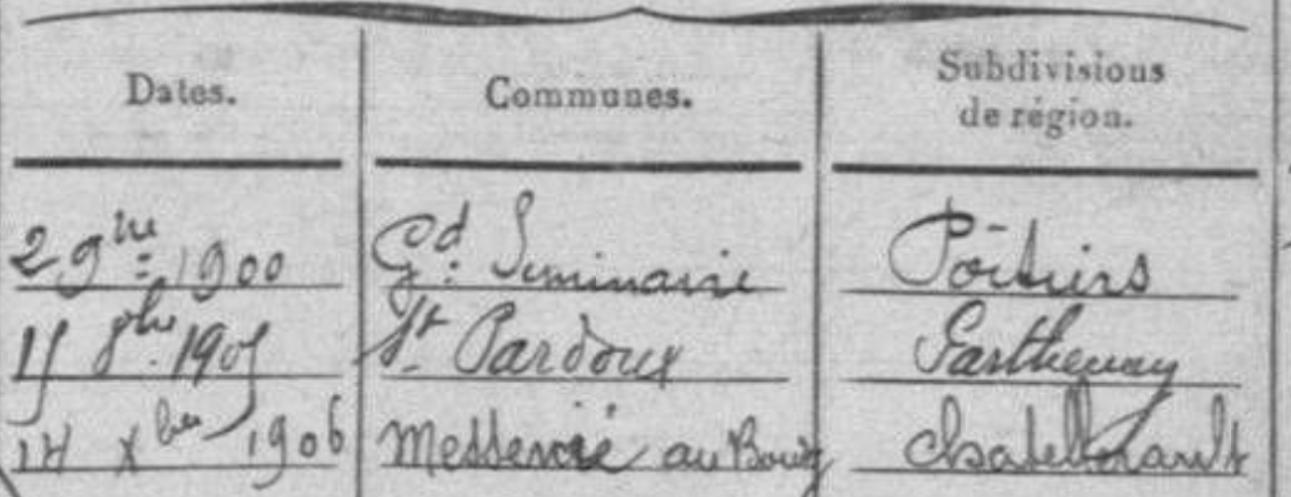 Dates. Communes. Subdivisions
de région.
2 9bre 1900 Gd. Seminaire Poitiers
15 8bre 1905 St Pardoux Parthenay
14 Xbre 1906 Messemé au Bourg Chatellerault